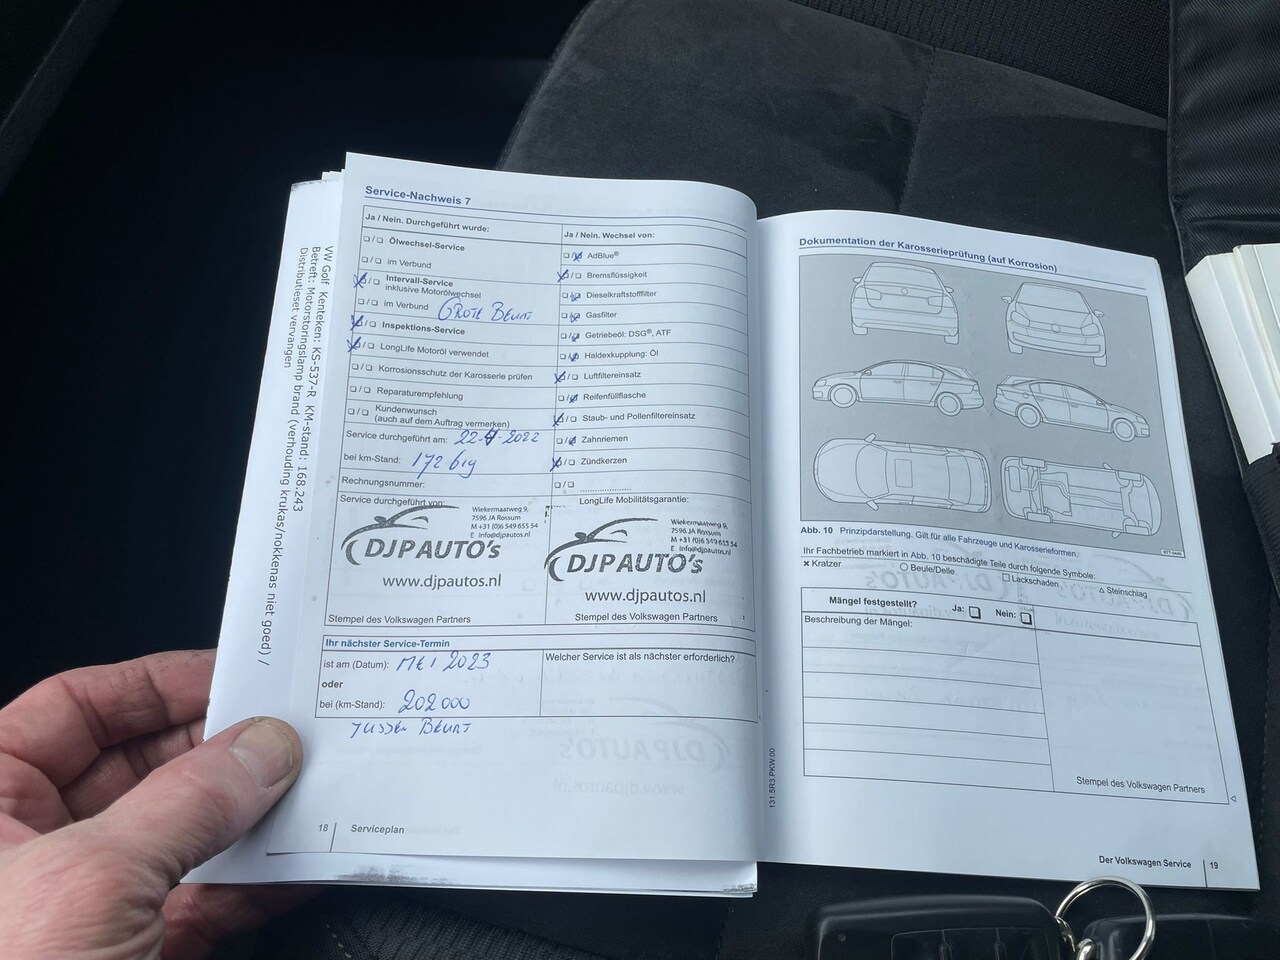 VW Golf Kenteken: KS-537-R KM-stand: 168.243
Betreft: Motorstoringslamp brand (verhouding krukas/nokkenas niet goed) /
Distributieset vervangen
Service-Nachweis 7
Ja / Nein. Durchgeführt wurde:
❏/❏ Ölwechsel-Service
❏/❏ im Verbund
❏/❏ Intervall-Service
inklusive Motorölwechsel
❏/❏ im Verbund GROTE BEURT
❏/❏ Inspektions-Service
❏/❏ LongLife Motoröl verwendet
❏/❏ Korrosionsschutz der Karosserie prüfen
❏/❏ Reparaturempfehlung
❏/❏ Kundenwunsch
(auch auf dem Auftrag vermerken)
Service durchgeführt am: 22-4-2022
bei km-Stand: 172 619
Rechnungsnummer:
Service durchgeführt von:
Wiekermaatweg 9,
7596 JA Rossum
M +31 (0)6 549 655 54
E info@djpautos.nl
DJP AUTO's
www.djpautos.nl
Stempel des Volkswagen Partners
Ja / Nein. Wechsel von:
❏/❏ AdBlue®
❏/❏ Bremsflüssigkeit
❏/❏ Dieselkraftstofffilter
❏/❏ Gasfilter
❏/❏ Getriebeöl: DSG®, ATF
❏/❏ Haldexkupplung: Öl
❏/❏ Luftfiltereinsatz
❏/❏ Reifenfüllflasche
❏/❏ Staub- und Pollenfiltereinsatz
❏/❏ Zahnriemen
❏/❏ Zündkerzen
❏/❏ ....................
LongLife Mobilitätsgarantie:
Wiekermaatweg 9,
7596 JA Rossum
M +31 (0)6 549 655 54
E info@djpautos.nl
DJP AUTO's
www.djpautos.nl
Stempel des Volkswagen Partners
Ihr nächster Service-Termin
ist am (Datum): MEI 2023
oder
bei (km-Stand): 202 000
TUSSEN BEURT
Welcher Service ist als nächster erforderlich?
18 Serviceplan
Dokumentation der Karosserieprüfung (auf Korrosion)
Abb. 10 Prinzipdarstellung. Gilt für alle Fahrzeuge und Karosserieformen.
Ihr Fachbetrieb markiert in Abb. 10 beschädigte Teile durch folgende Symbole:
× Kratzer ○ Beule/Delle □ Lackschaden △ Steinschlag
Mängel festgestellt? Ja: ❏ Nein: ❏
Beschreibung der Mängel:
Stempel des Volkswagen Partners
131.5R3.PKW.00
Der Volkswagen Service 19